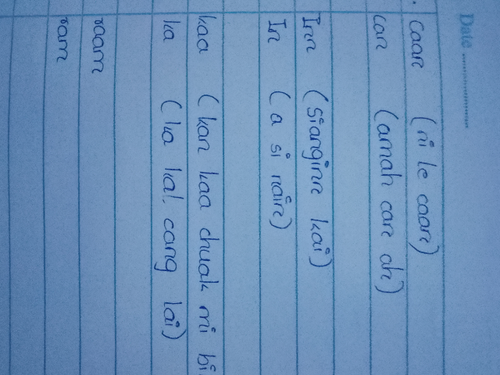 Date
. caan (ni le caan)
can (amah can ah)
Inn (Sianginn kai)
In (a si nain)
kaa (kan kaa chuak mi bi
ka (ka kal cang lai)
raam
ram